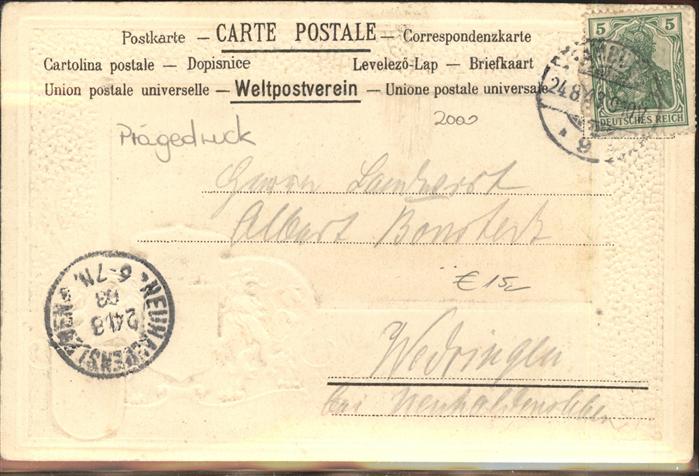 Postkarte — CARTE POSTALE — Correspondenzkarte
Cartolina postale — Dopisnice Levelező-Lap — Briefkaart
Union postale universelle — Weltpostverein — Unione postale universale
5 5
DEUTSCHES REICH
24.8.
9
Prägedruck
2000
Herrn
Albert
€ 15,-
Wedringen
bei Neuhaldensleben
NEUHALDENSLEBEN
24.8
03
6-7N.